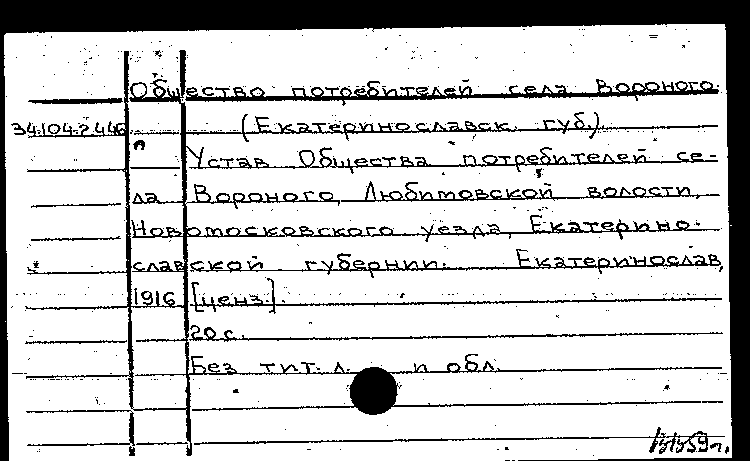 Общество потребителей села Вороного
34.104.2.446 (Екатеринославск. губ.).
Устав Общества потребителей се-
ла Вороного, Любимовской волости,
Новомосковского уезда, Екатерино-
славской губернии. Екатеринослав,
1916 [ценз.].
20 с.
Без тит. л. и обл.